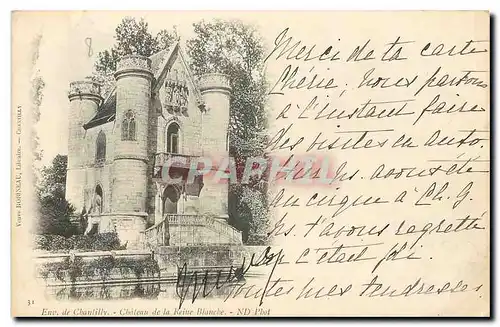 Merci de ta carte
Chérie, nous partons
à l'instant faire
des visites en auto.
ns. avons été
au cirque à Ch. G.
ns. t'avons regrettée
c'était
Toutes mes tendresses
Veuve ROBINEAU, Libraire. - CHANTILLY
CPARAMA
31
Env. de Chantilly. - Château de la Reine Blanche. - ND Phot